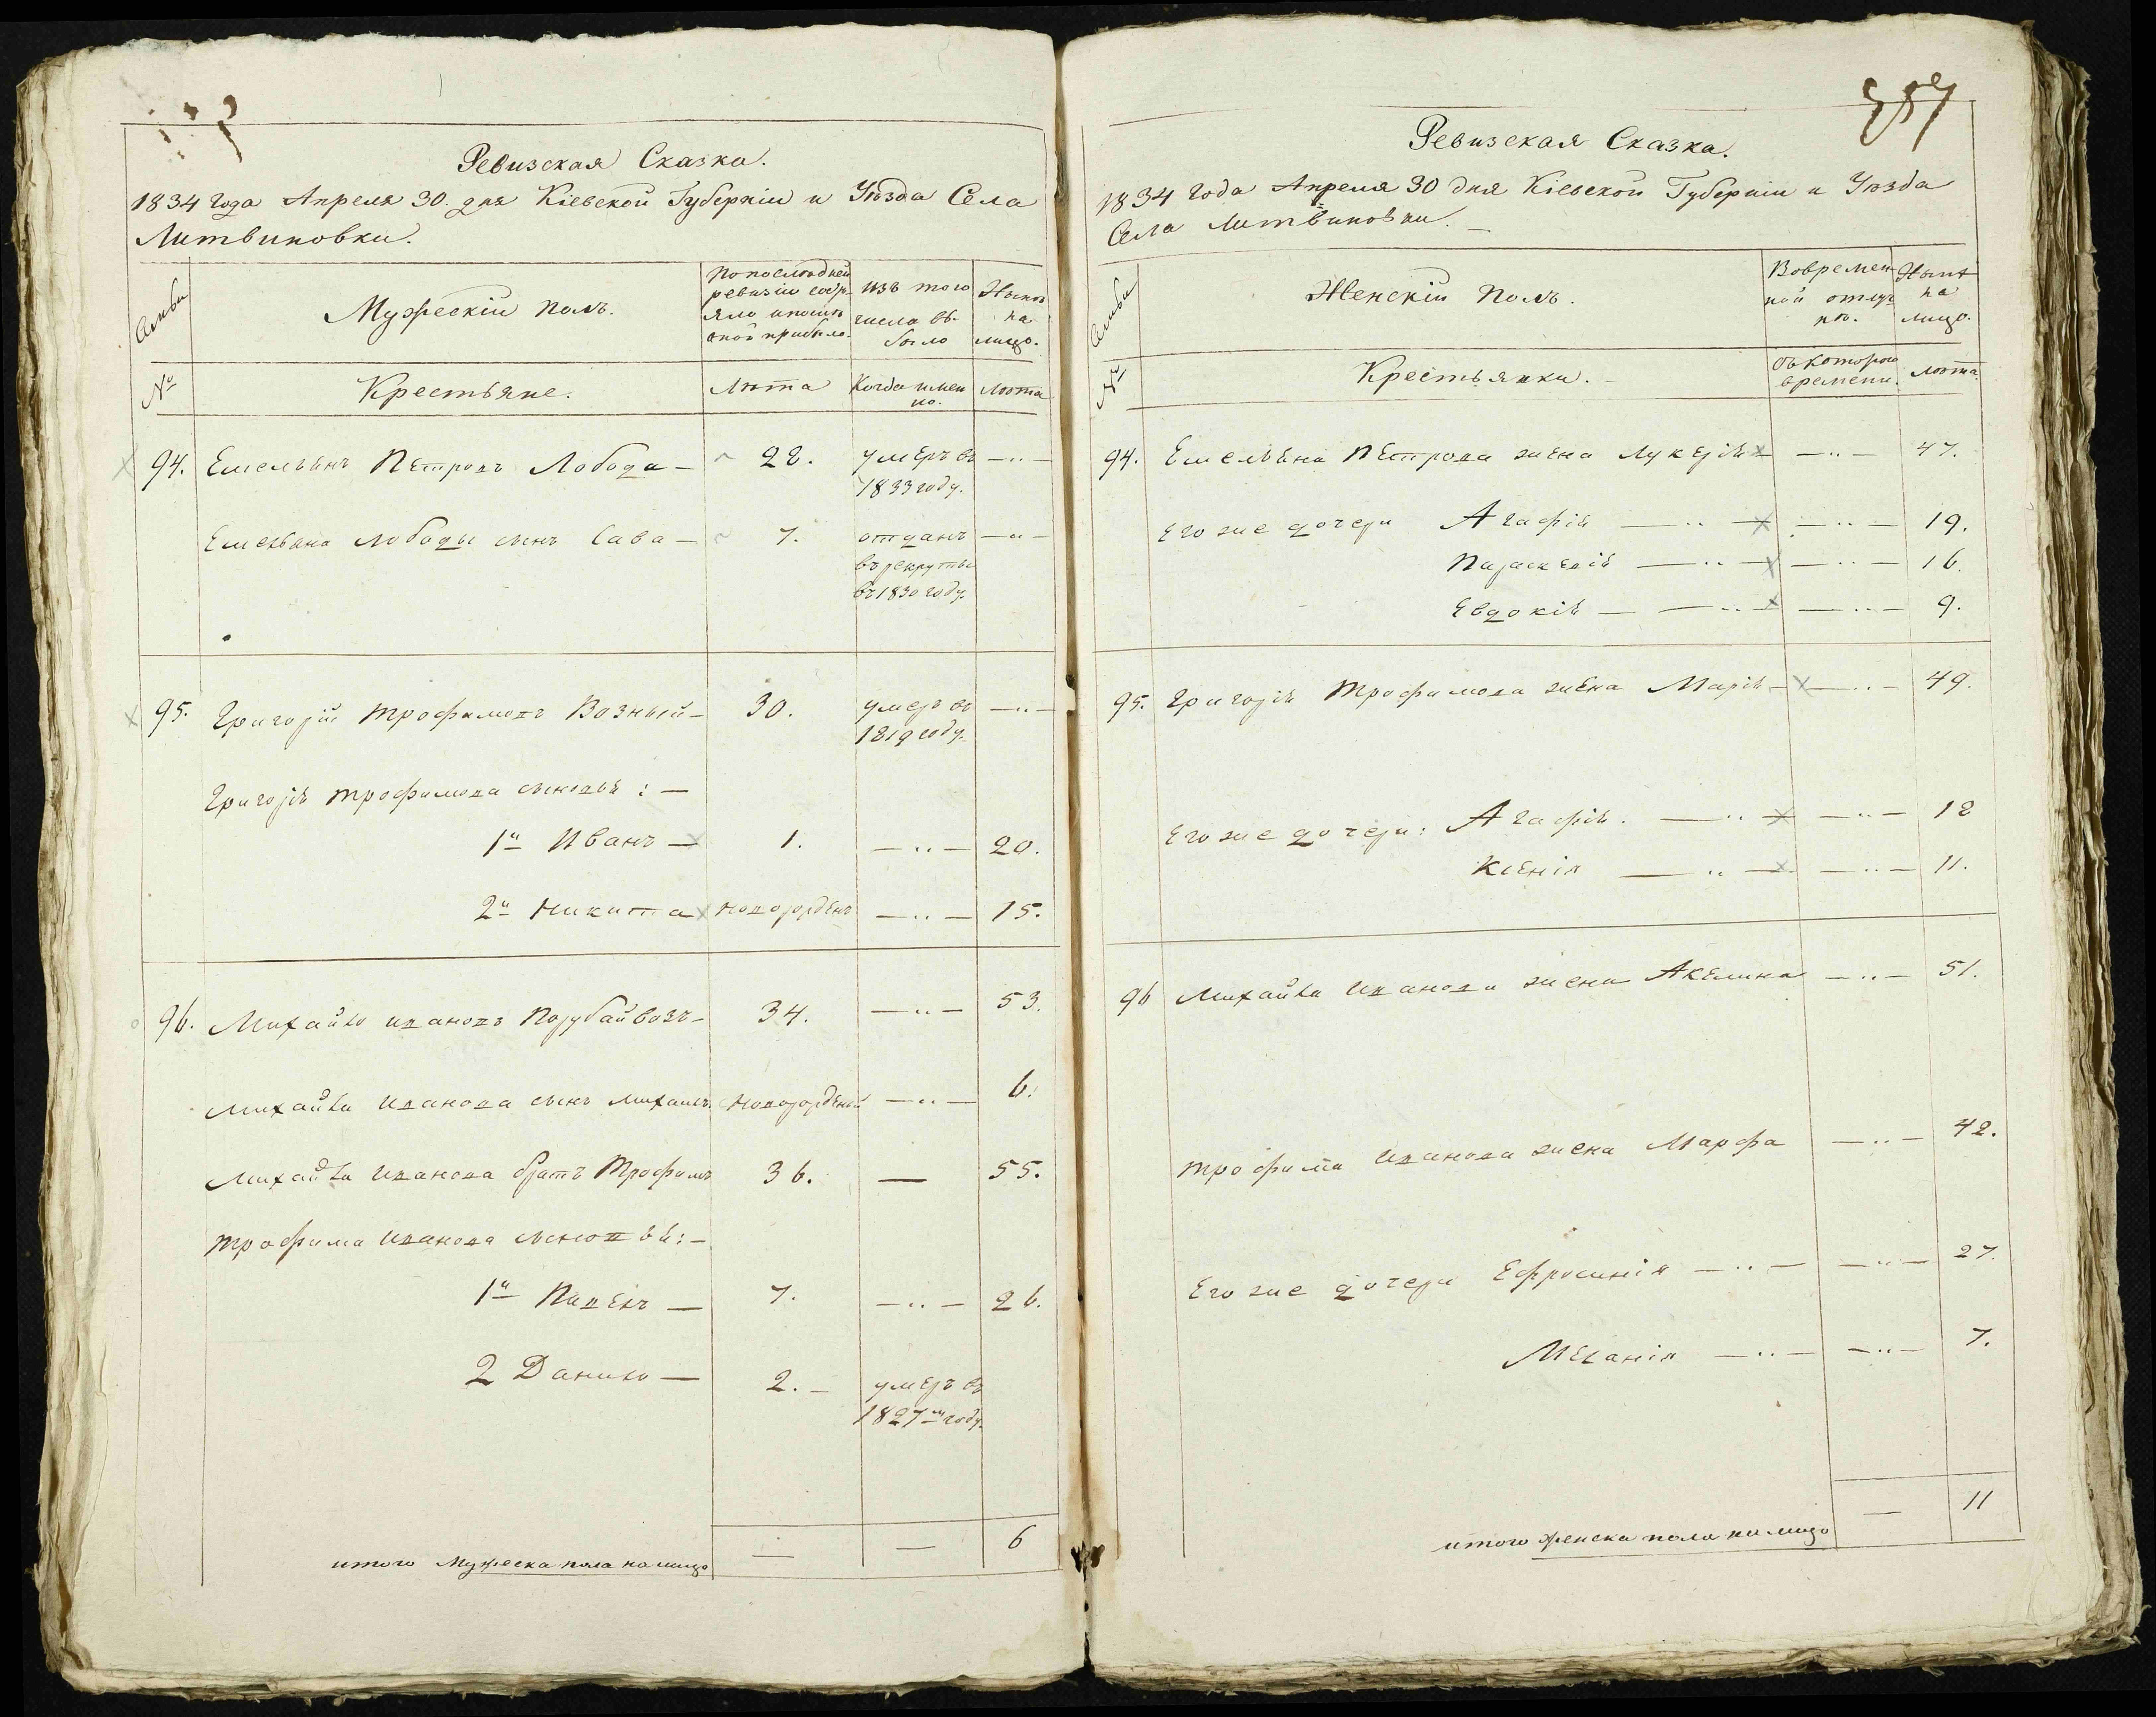 Ревизская Сказка.
1834 года Апреля 30. дня Кіевской Губерніи и Уѣзда Села
Литвиновки.
Семьи
Мужескій полъ.
По последней
ревизіи состо-
яло и после
оной прибыло.
Изъ того
числа вы-
было
Нынѣ
на
лицо.
№
Крестьяне.
Лѣта
Когда имен
но.
Лѣта
94. Емельянъ Петровъ Лобода — 22. умеръ въ —"—
1833 году.
Емельяна Лободы сынъ Сава — 7. отданъ —"—
въ рекруты
въ 1830 году.
95. Григорій Трофимовъ Возный — 30. умеръ въ —"—
1819 году.
Григорія Трофимова сыновья: —
1й Иванъ — 1. —"— 20.
2й Никита новорожденъ —"— 15.
96. Михайло Ивановъ Порубайвозъ — 34. —"— 53.
Михайла Иванова сынъ Михаилъ новорожденый —"— 6.
Михайла Иванова братъ Трофимъ 36. — 55.
Трофима Иванова сыновья: —
1й Павелъ — 7. —"— 26.
2 Данило — 2. — умеръ въ
1827м году.
итого Мужеска пола на лицо — — 6
257
Ревизская Сказка.
1834 года Апреля 30 дня Кіевской Губерніи и Уѣзда
Села Литвиновки. —
Семьи
Женскій полъ.
Во времен
ной отлуч
кѣ.
Нынѣ
на
лицо.
№
Крестьянки. —
Съ котораго
времени.
Лѣта
94. Емельяна Петрова жена Лукерія —"— 47.
Его же дочери Агафія —"— —"— 19.
Параскевія —"— —"— 16.
Евдокія — —"— —"— 9.
95. Григорія Трофимова жена Марія — —"— 49.
Его же дочери: Агафія. —"— —"— 12
Ксенія —"— —"— 11.
96 Михайла Иванова жена Акелина —"— 51.
Трофима Иванова жена Марфа —"— 42.
Его же дочери Ефросинія —"— —"— 27.
Меланія —"— —"— 7.
итого женска пола на лицо — 11